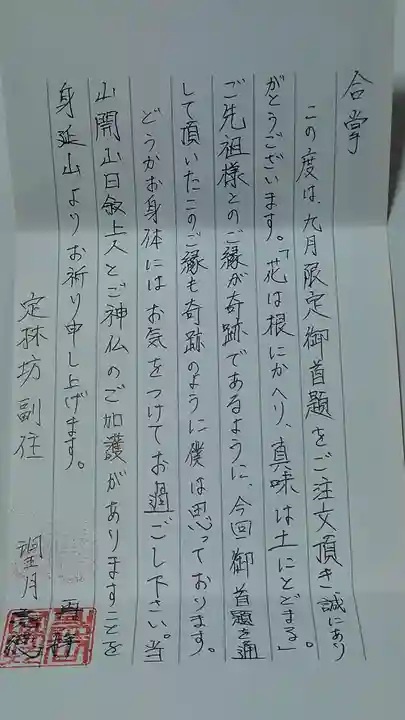 合掌
この度は、九月限定御首題をご注文頂き誠にあり
がとうございます。「花は根にかへり、真味は土にとどまる」
ご先祖様とのご縁が奇跡であるように、今回御首題を通
して頂いたこのご縁も奇跡のように僕は思っております。
どうかお身体にはお気をつけてお過ごし下さい。当
山開山日叙上人とご神仏のご加護がありますことを
身延山よりお祈り申し上げます。
定林坊副住 望月